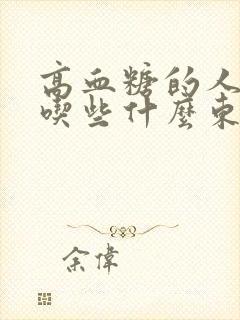 高血糖的人
喫些什麼東
余偉